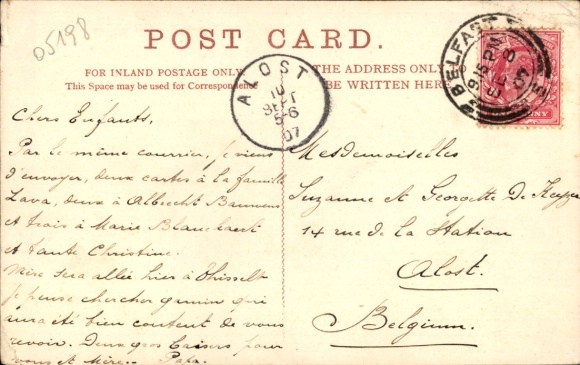 05198
POST CARD.
FOR INLAND POSTAGE ONLY
This Space may be used for Correspondence
THE ADDRESS ONLY TO
BE WRITTEN HERE
ALOST
10
SEPT
5-6
07
BELFAST
9 15 PM
SE 8
07
Chers Enfants,
Par le même courrier, je viens
d'envoyer, deux cartes à la famille
Lava, deux à Albrecht
et trois à Marie Blanckaert
et tante Christine.
Mère sera allée hier à
je pense chercher gamin qui
aura été bien content de vous
revoir. Deux gros baisers pour
vous et Mère. Papa.
Mesdemoiselles
Suzanne et Georgette De
14 rue de la Station
Alost.
Belgium.